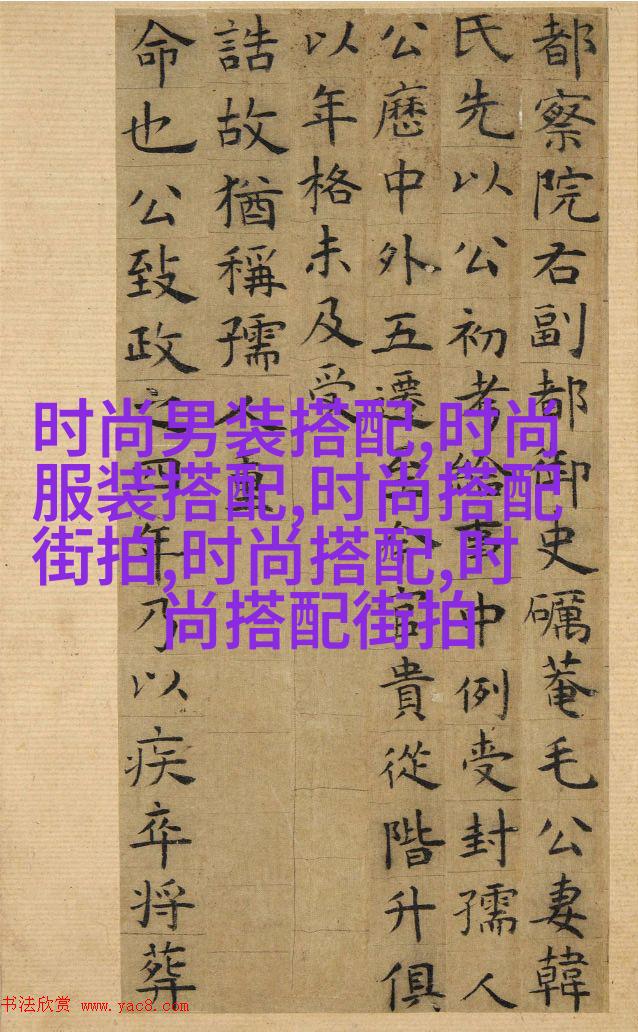 都察院右副都御史礪菴毛公妻韓
氏先以公初考給事中例受封孺人
公歷中外五遷至今官貴從階升俱
以年格未及受
誥故猶稱孺人重
命也公致政之四年乃以疾卒将葬
时尚男装搭配,时尚
服装搭配,时尚搭配
街拍,时尚搭配,时
尚搭配街拍
书法欣赏 www.yac8.com